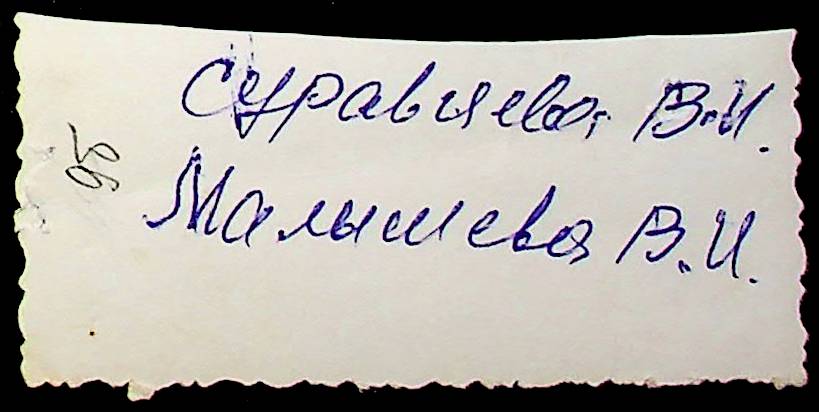 Суравцева В.И.
Малышева В.И.
95